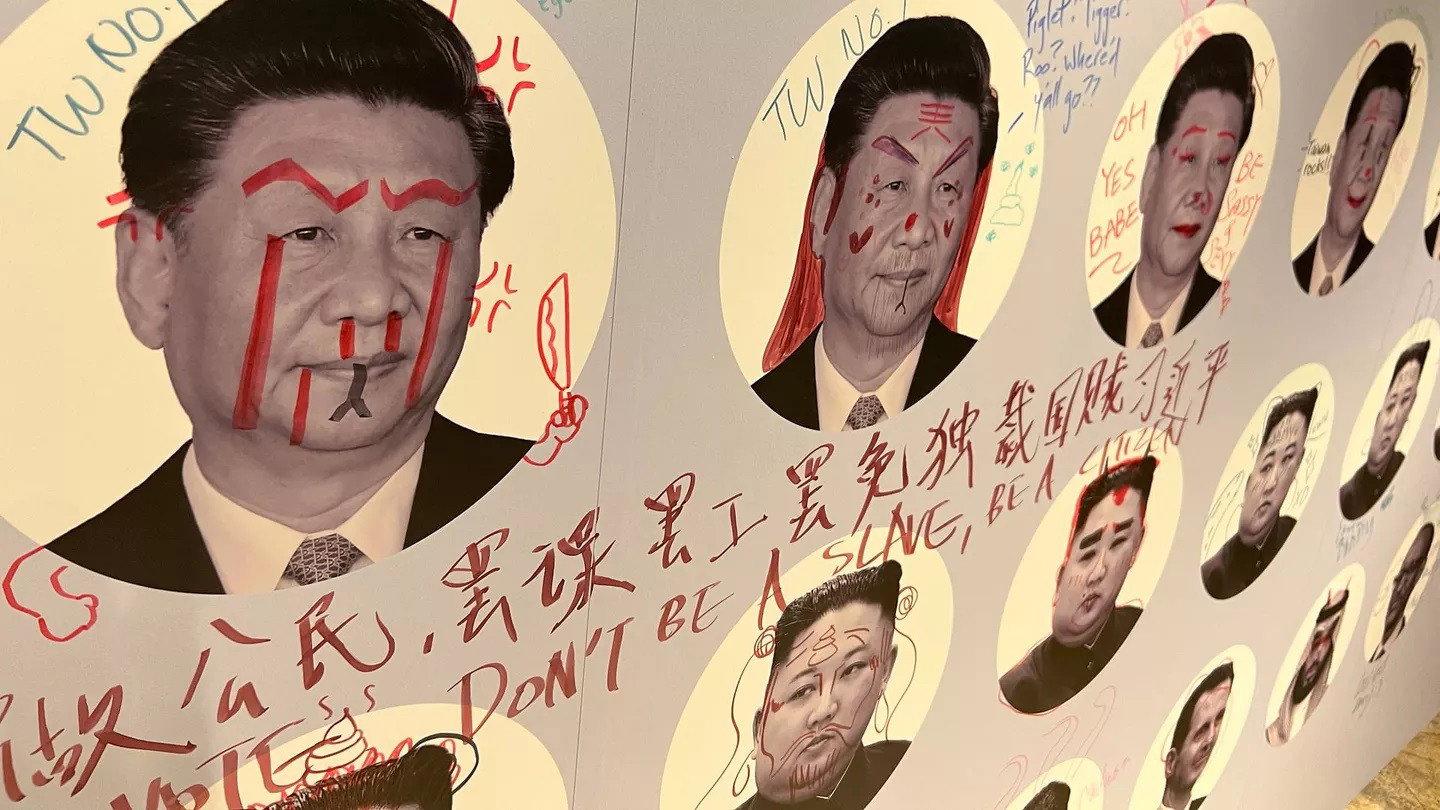 TW NO.1
TW NO.1
Piglet? Tigger?
Roo? Where'd
y'all go??
OH
YES
BABE
BE
Sassy
Taiwan
rocks!!
做公民,罢课罢工罢免独裁国贼习近平
VOTE DON'T BE A SLAVE, BE A CITIZEN